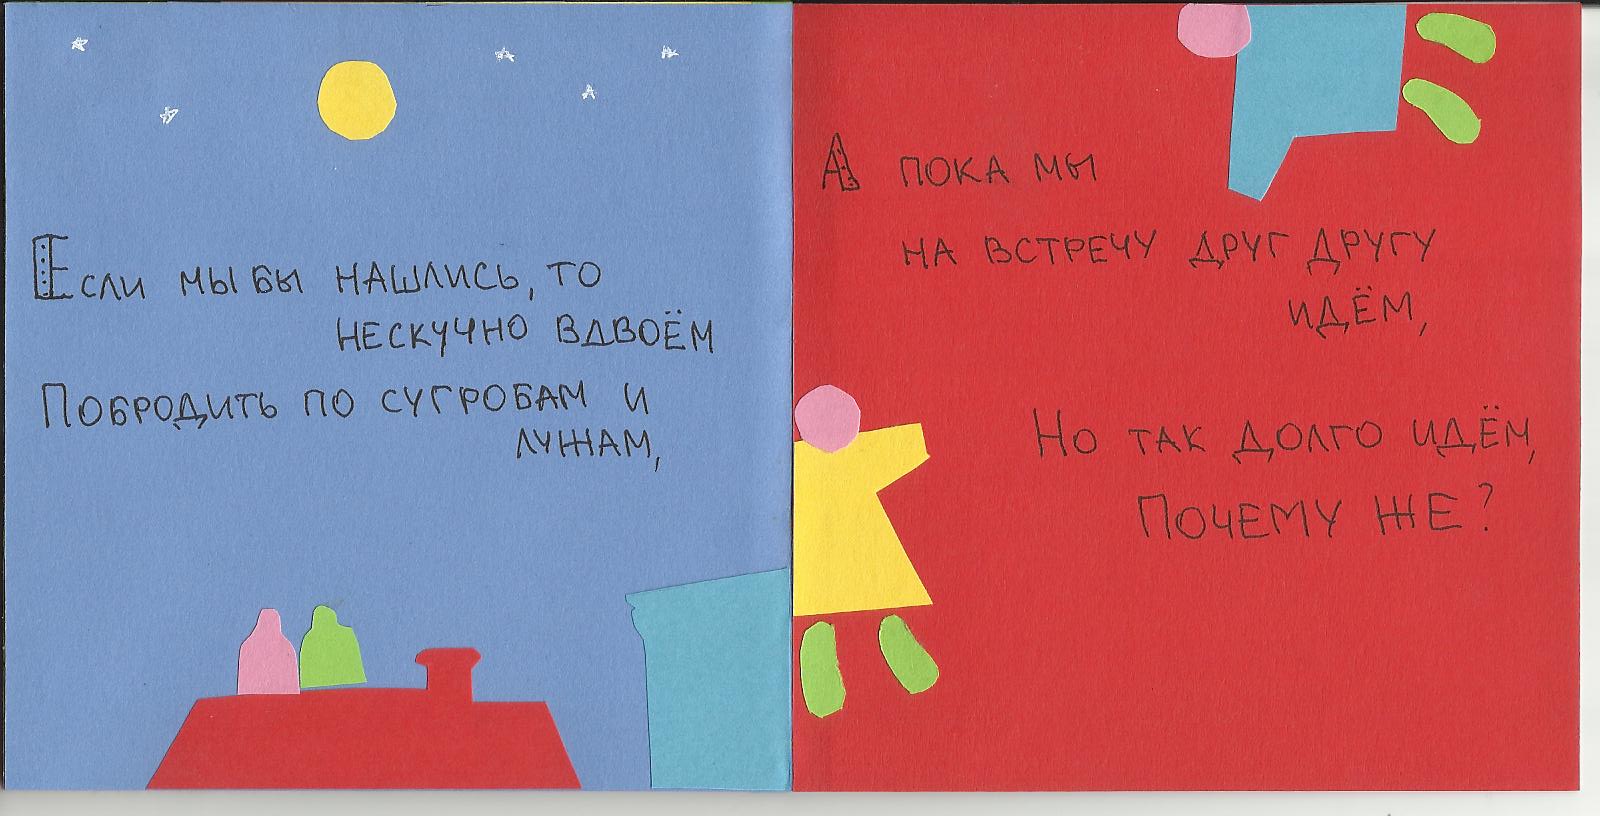 Если мы бы нашлись, то
нескучно вдвоём
Побродить по сугробам и
лужам,
А пока мы
на встречу друг другу
идём,
Но так долго идём,
Почему же?